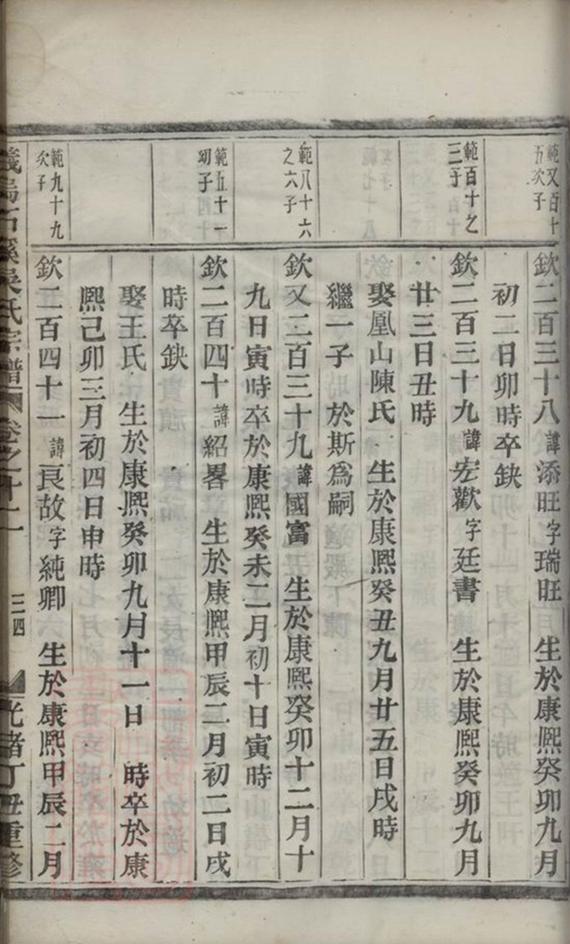 範又百十
五次子
欽二百三十八諱添旺字瑞旺　生於康熙癸卯九月
初二日卯時卒缺
範百十之
三子
欽二百三十九諱宏歡字廷書　生於康熙癸卯九月
廿三日丑時
娶凰山陳氏　生於康熙癸丑九月廿五日戌時
繼一子　於斯為嗣
範八十六
之六子
欽又二百三十九諱國富　生於康熙癸卯十二月十
九日寅時卒於康熙癸未二月初十日寅時
範五十一
幼子
欽二百四十諱紹畧　生於康熙甲辰二月初二日戌
時卒缺
娶王氏　生於康熙癸卯九月十一日　時卒於康
熙己卯三月初四日申時
範九十九
次子
欽二百四十一諱良故字純卿　生於康熙甲辰二月
義烏石溪吳氏宗譜　卷之十二　三四　光緒丁丑重修